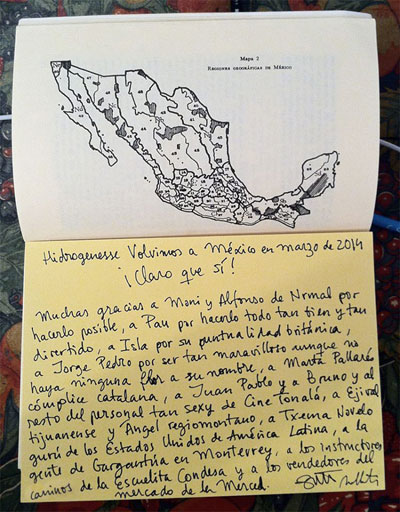 Mapa 2
REGIONES GEOGRÁFICAS DE MÉXICO
Hidrogenesse Volvimos a México en marzo de 2014
¡Claro que sí!
Muchas gracias a Moni y Alfonso de Nrmal por
hacerlo posible, a Pau por hacerlo todo tan bien y tan
divertido, a Isla por su puntualidad británica,
a Jorge Pedro por ser tan maravilloso aunque no
haya ninguna flor a su nombre, a Marta Pallarès
cómplice catalana, a Juan Pablo y a Bruno y al
resto del personal tan sexy de Cine Tonalá, a Ejival
tijuanense y Ángel regiomontano, a Txema Novelo
gurú de los Estados Unidos de América Latina, a la
gente de Gargantúa en Monterrey, a los instructores
caninos de la Escuelita Condesa y a los vendedores del
mercado de la Merced.